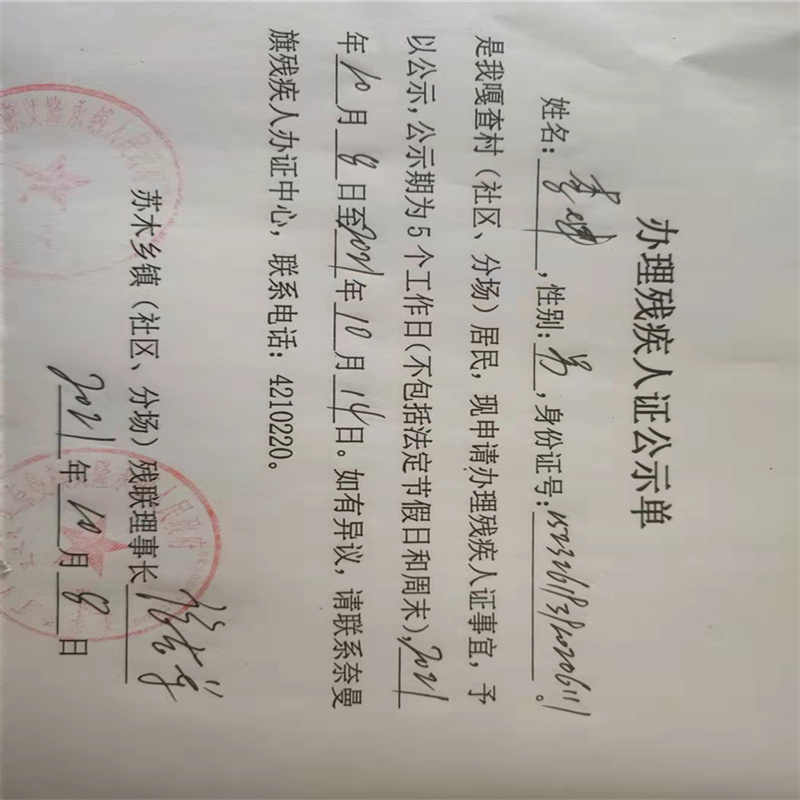 办理残疾人证公示单
姓名:李坤,性别:男,身份证号:。
是我嘎查村(社区、分场)居民,现申请办理残疾人证事宜,予
以公示,公示期为5个工作日(不包括法定节假日和周末),2021
年10月8日至2021年10月14日。如有异议,请联系奈曼
旗残疾人办证中心,联系电话:4210220。
苏木乡镇(社区、分场)残联理事长
2021年10月8日